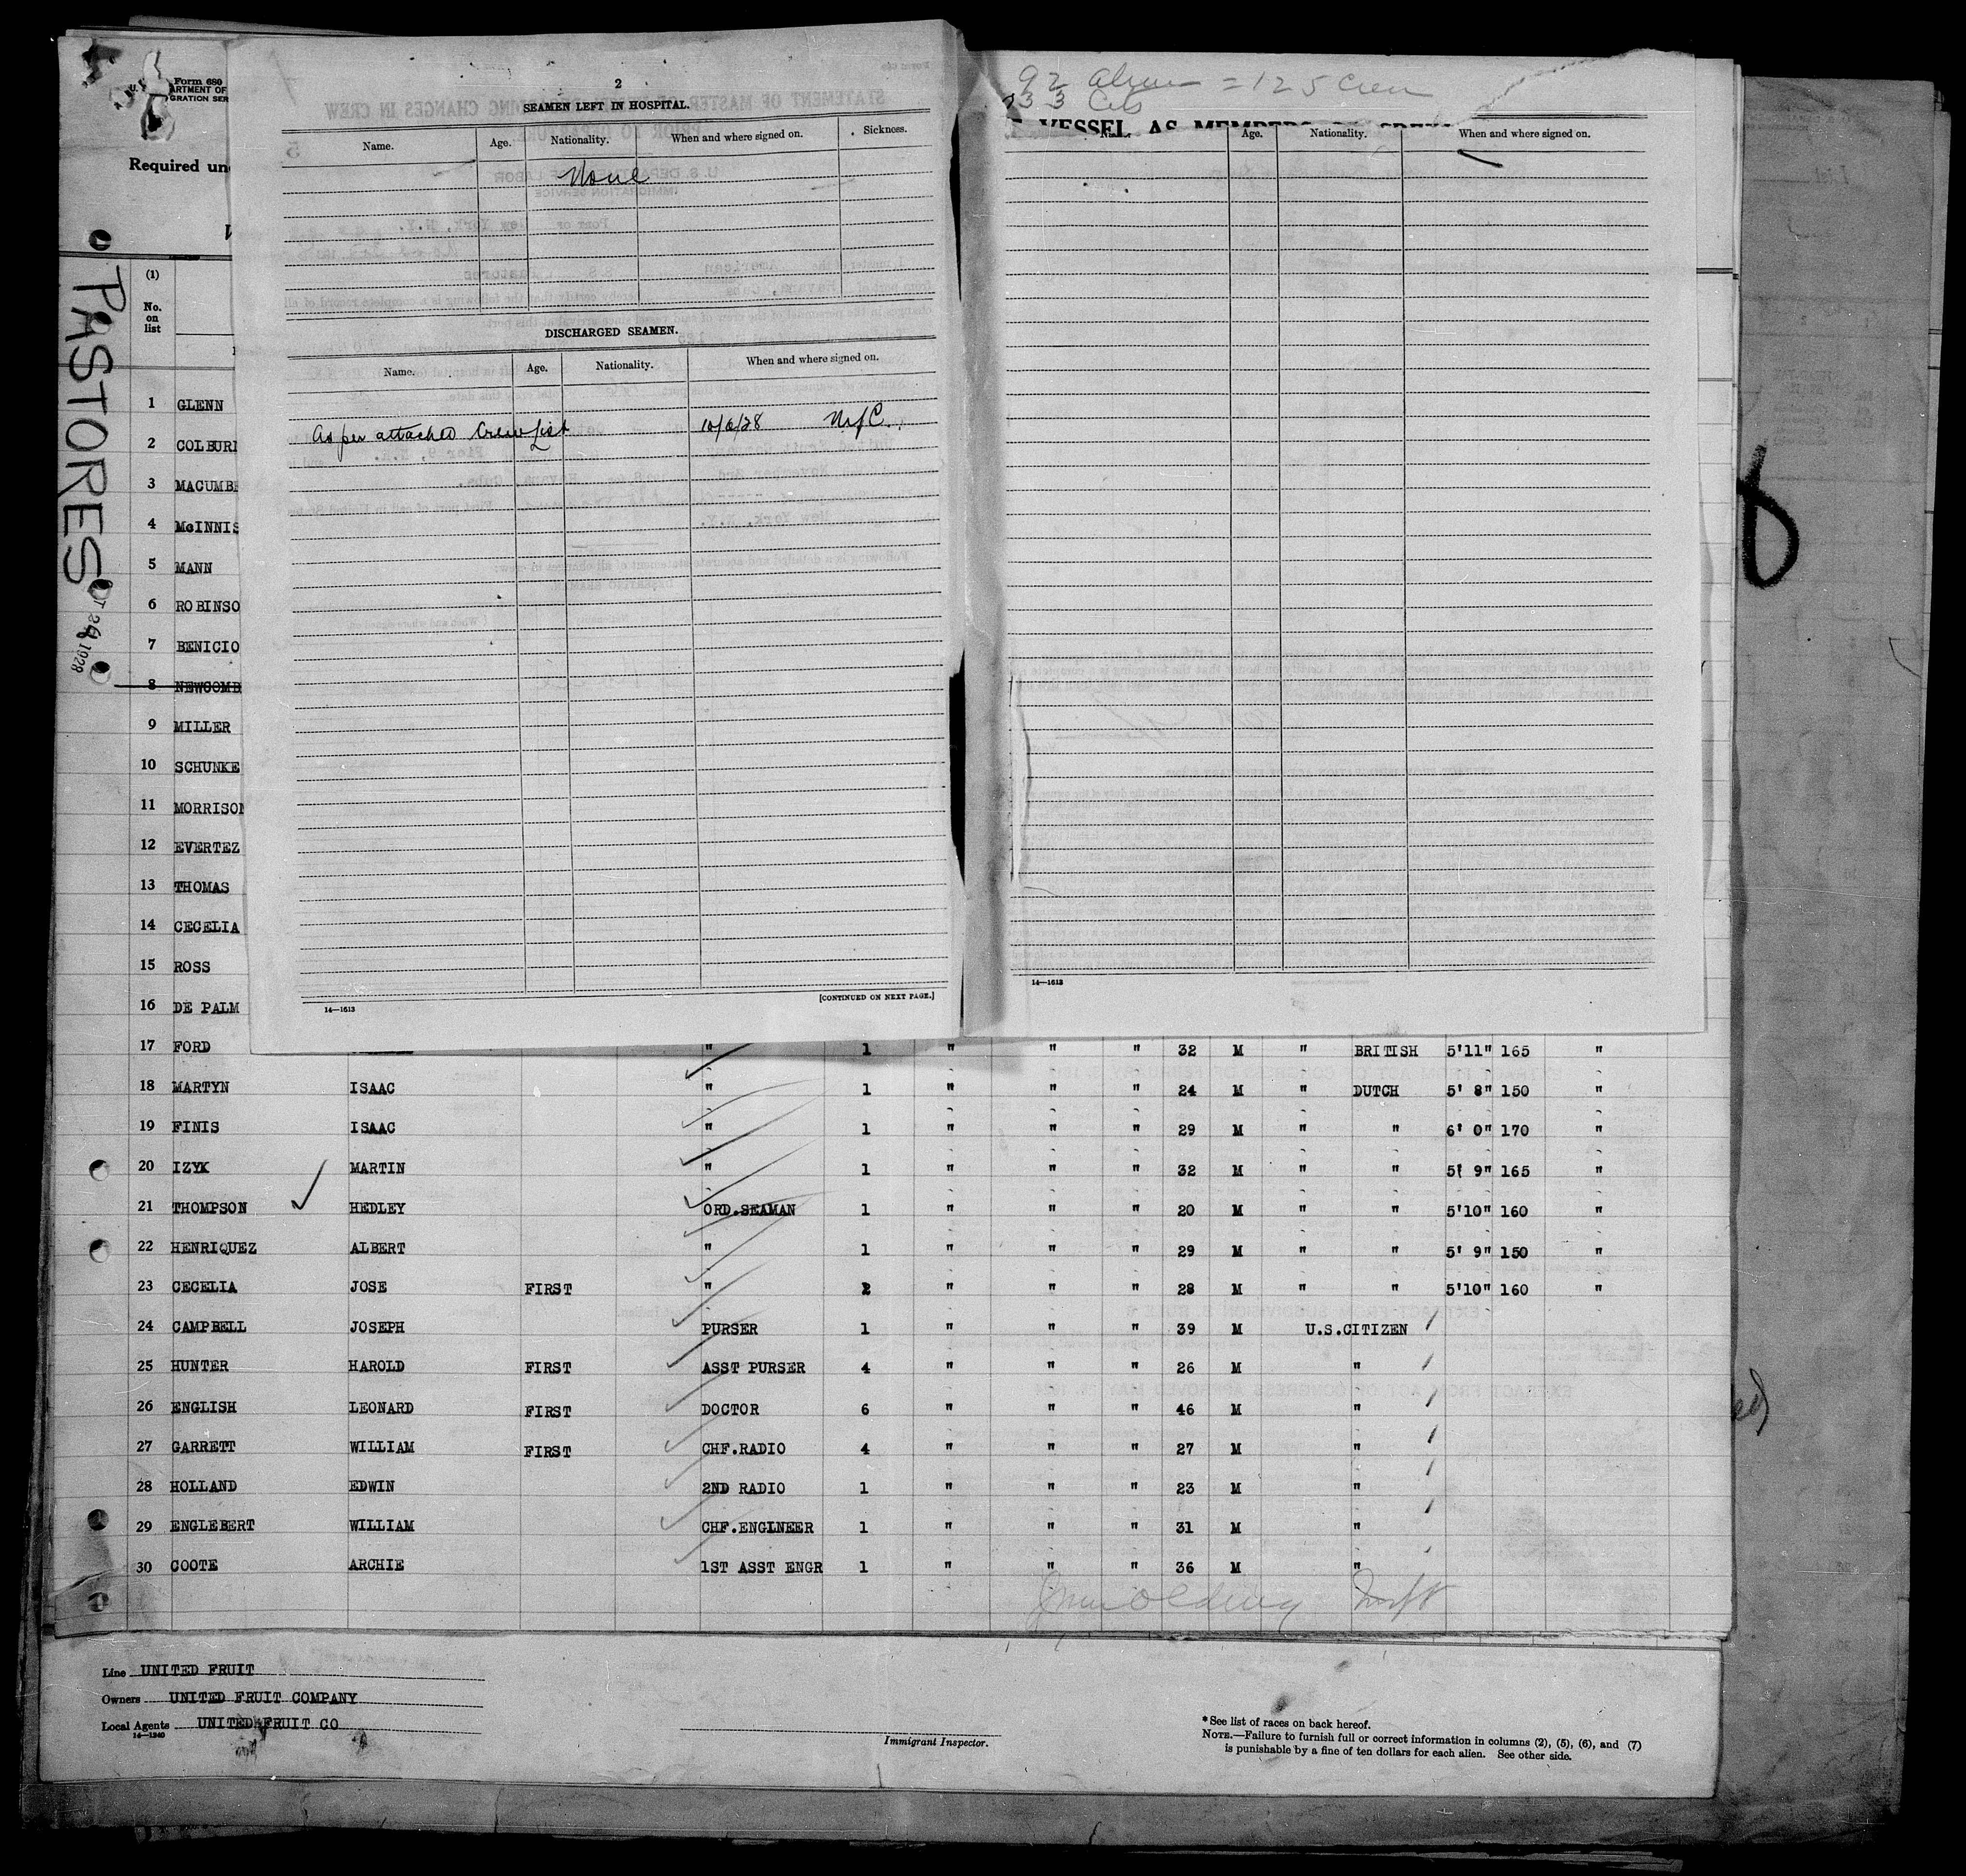 Form 680
ARTMENT OF
GRATION SER
Required un
PASTORES
1928
(1)
No.
on
list
2
SEAMEN LEFT IN HOSPITAL.
Name. Age. Nationality. When and where signed on. Sickness.
None
DISCHARGED SEAMEN.
Name. Age. Nationality. When and where signed on.
As per attached Crew List 10/6/28 N.Y.C.
14—1613 [CONTINUED ON NEXT PAGE.]
92 Alien = 125 Crew
33 Cits
VESSEL AS MEMBERS
Age. Nationality. When and where signed on.
14—1613
1 GLENN
2 COLBUR
3 MACUMBE
4 McINNIS
5 MANN
6 ROBINSO
7 BENICIO
8 NEWCOMB
9 MILLER
10 SCHUNKE
11 MORRISON
12 EVERTEZ
13 THOMAS
14 CECELIA
15 ROSS
16 DE PALM
17 FORD " 1 " " " 32 M " BRITISH 5'11" 165 "
18 MARTYN ISAAC " 1 " " " 24 M " DUTCH 5' 8" 150 "
19 FINIS ISAAC " 1 " " " 29 M " " 6' 0" 170 "
20 IZYK MARTIN " 1 " " " 32 M " " 5' 9" 165 "
21 THOMPSON HEDLEY ORD.SEAMAN 1 " " " 20 M " " 5'10" 160 "
22 HENRIQUEZ ALBERT " 1 " " " 29 M " " 5' 9" 150 "
23 CECELIA JOSE FIRST " 2 " " " 28 M " " 5'10" 160 "
24 CAMPBELL JOSEPH PURSER 1 " " " 39 M U.S.CITIZEN
25 HUNTER HAROLD FIRST ASST PURSER 4 " " " 26 M "
26 ENGLISH LEONARD FIRST DOCTOR 6 " " " 46 M "
27 GARRETT WILLIAM FIRST CHF.RADIO 4 " " " 27 M "
28 HOLLAND EDWIN 2ND RADIO 1 " " " 23 M "
29 ENGLEBERT WILLIAM CHF.ENGINEER 1 " " " 31 M "
30 COOTE ARCHIE 1ST ASST ENGR 1 " " " 36 M "
Line UNITED FRUIT
Owners UNITED FRUIT COMPANY
Local Agents UNITED FRUIT CO
14—1240
Immigrant Inspector.
* See list of races on back hereof.
NOTE.—Failure to furnish full or correct information in columns (2), (5), (6), and (7)
is punishable by a fine of ten dollars for each alien. See other side.